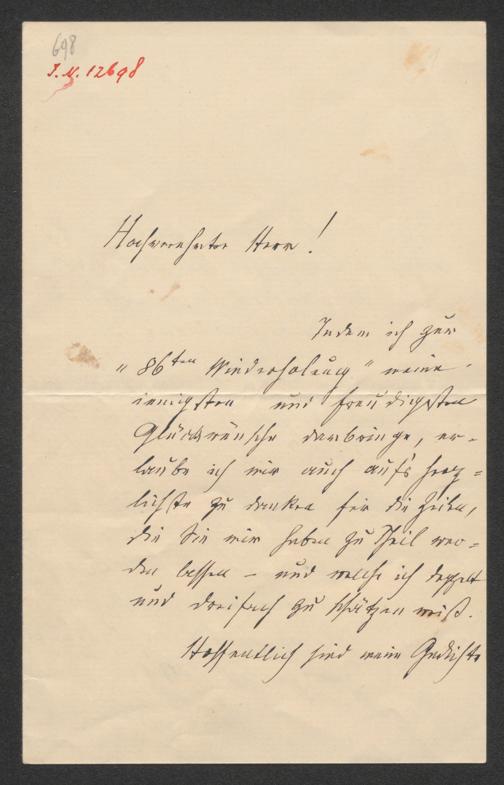 698
I. N. 12698
Hochverehrter Herr!
Indem ich zur
„86ten Wiederholung" meine
innigsten und freudigsten
Glückwünsche darbringe, er-
laube ich mir auch auf's herz-
lichste zu danken für die Zeilen,
die Sie mir haben zu Theil wer-
den lassen – und welche ich doppelt
und dreifach zu schätzen weiß.
Hoffentlich sind meine Gedichte